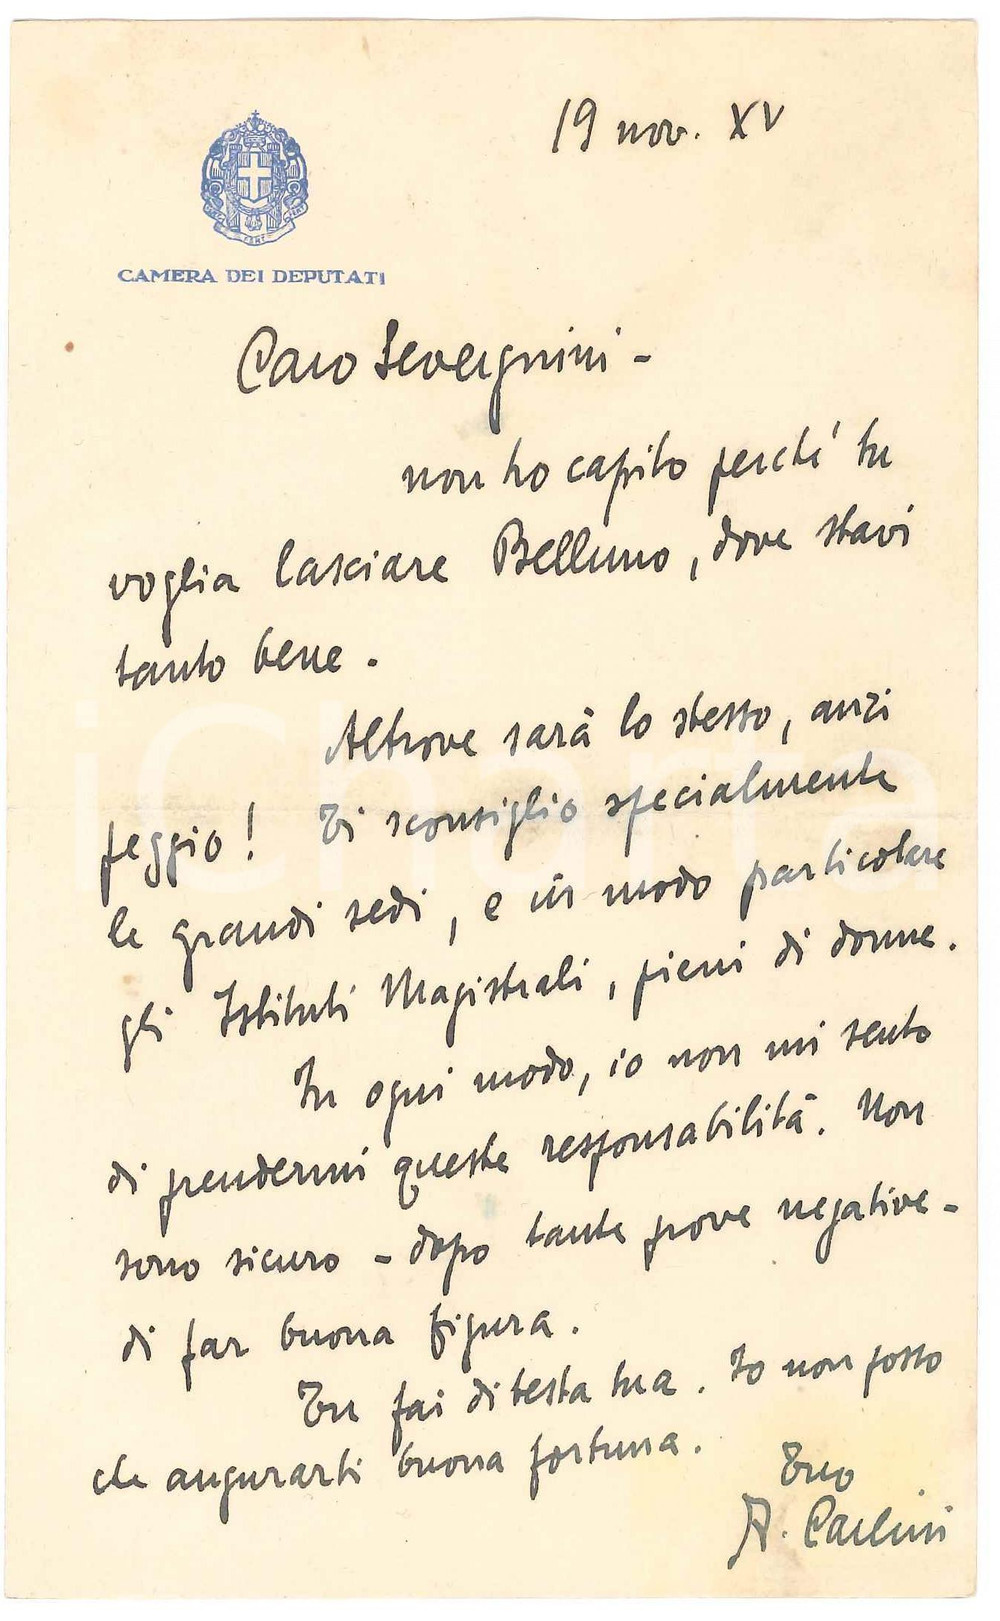 19 nov. XV
CAMERA DEI DEPUTATI
Caro Severgnini -
non ho capito perché tu
voglia lasciare Belluno, dove stavi
tanto bene.
Altrove sarà lo stesso, anzi
peggio! Ti sconsiglio specialmente
le grandi sedi, e in modo particolare
gli Istituti Magistrali, pieni di donne.
In ogni modo, io non mi sento
di prendermi queste responsabilità. Non
sono sicuro - dopo tante prove negative -
di far buona figura.
Tu fai di testa tua. Io non posso
che augurarti buona fortuna.
Tuo
A. Carlini
iCharta